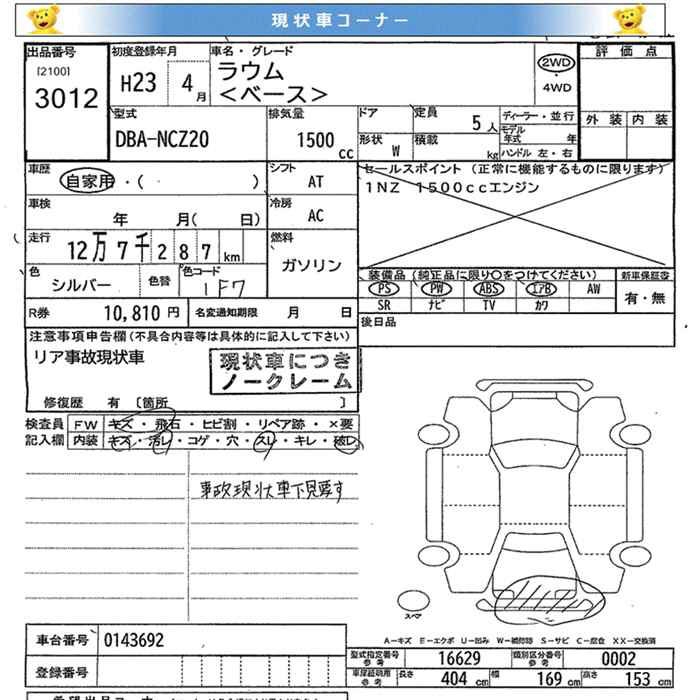 現状車コーナー
出品番号
[2100]
3012
初度登録年月
H23 4月
車名・グレード
ラウム
<ベース>
2WD
・
4WD
評価点
外装 内装
型式
DBA-NCZ20
排気量
1500cc
ドア
定員
5人
形状
W
積載
kg
ディーラー・並行
モデル年式 年
ハンドル 左・右
車歴
自家用・( )
シフト
AT
セールスポイント (正常に機能するものに限ります)
1NZ 1500ccエンジン
車検
年 月( 日)
冷房
AC
走行
12万7千287km
燃料
ガソリン
色
シルバー
色替
色コード
1F7
装備品(純正品に限り○をつけてください)
PS PW ABS エアB AW
SR ナビ TV カワ
新車保証書
有・無
R券
10,810円
名変通知期限 月 日
後日品
注意事項申告欄(不具合内容等は具体的に記入して下さい)
リア事故現状車
現状車につき
ノークレーム
修復歴 有 〔箇所 〕
検査員
記入欄
FW キズ・飛石・ヒビ割・リペア跡・×要
内装 キズ・汚レ・コゲ・穴・スレ・キレ・破レ
事故現状車下見要す
スペア
A－キズ E－エクボ U－凹み W－補修跡 S－サビ C－腐食 XX－交換済
車台番号 0143692
登録番号
型式指定番号
参考
16629
類別区分番号
参考
0002
車庫証明用
参考
長さ 404cm 幅 169cm 高さ 153cm